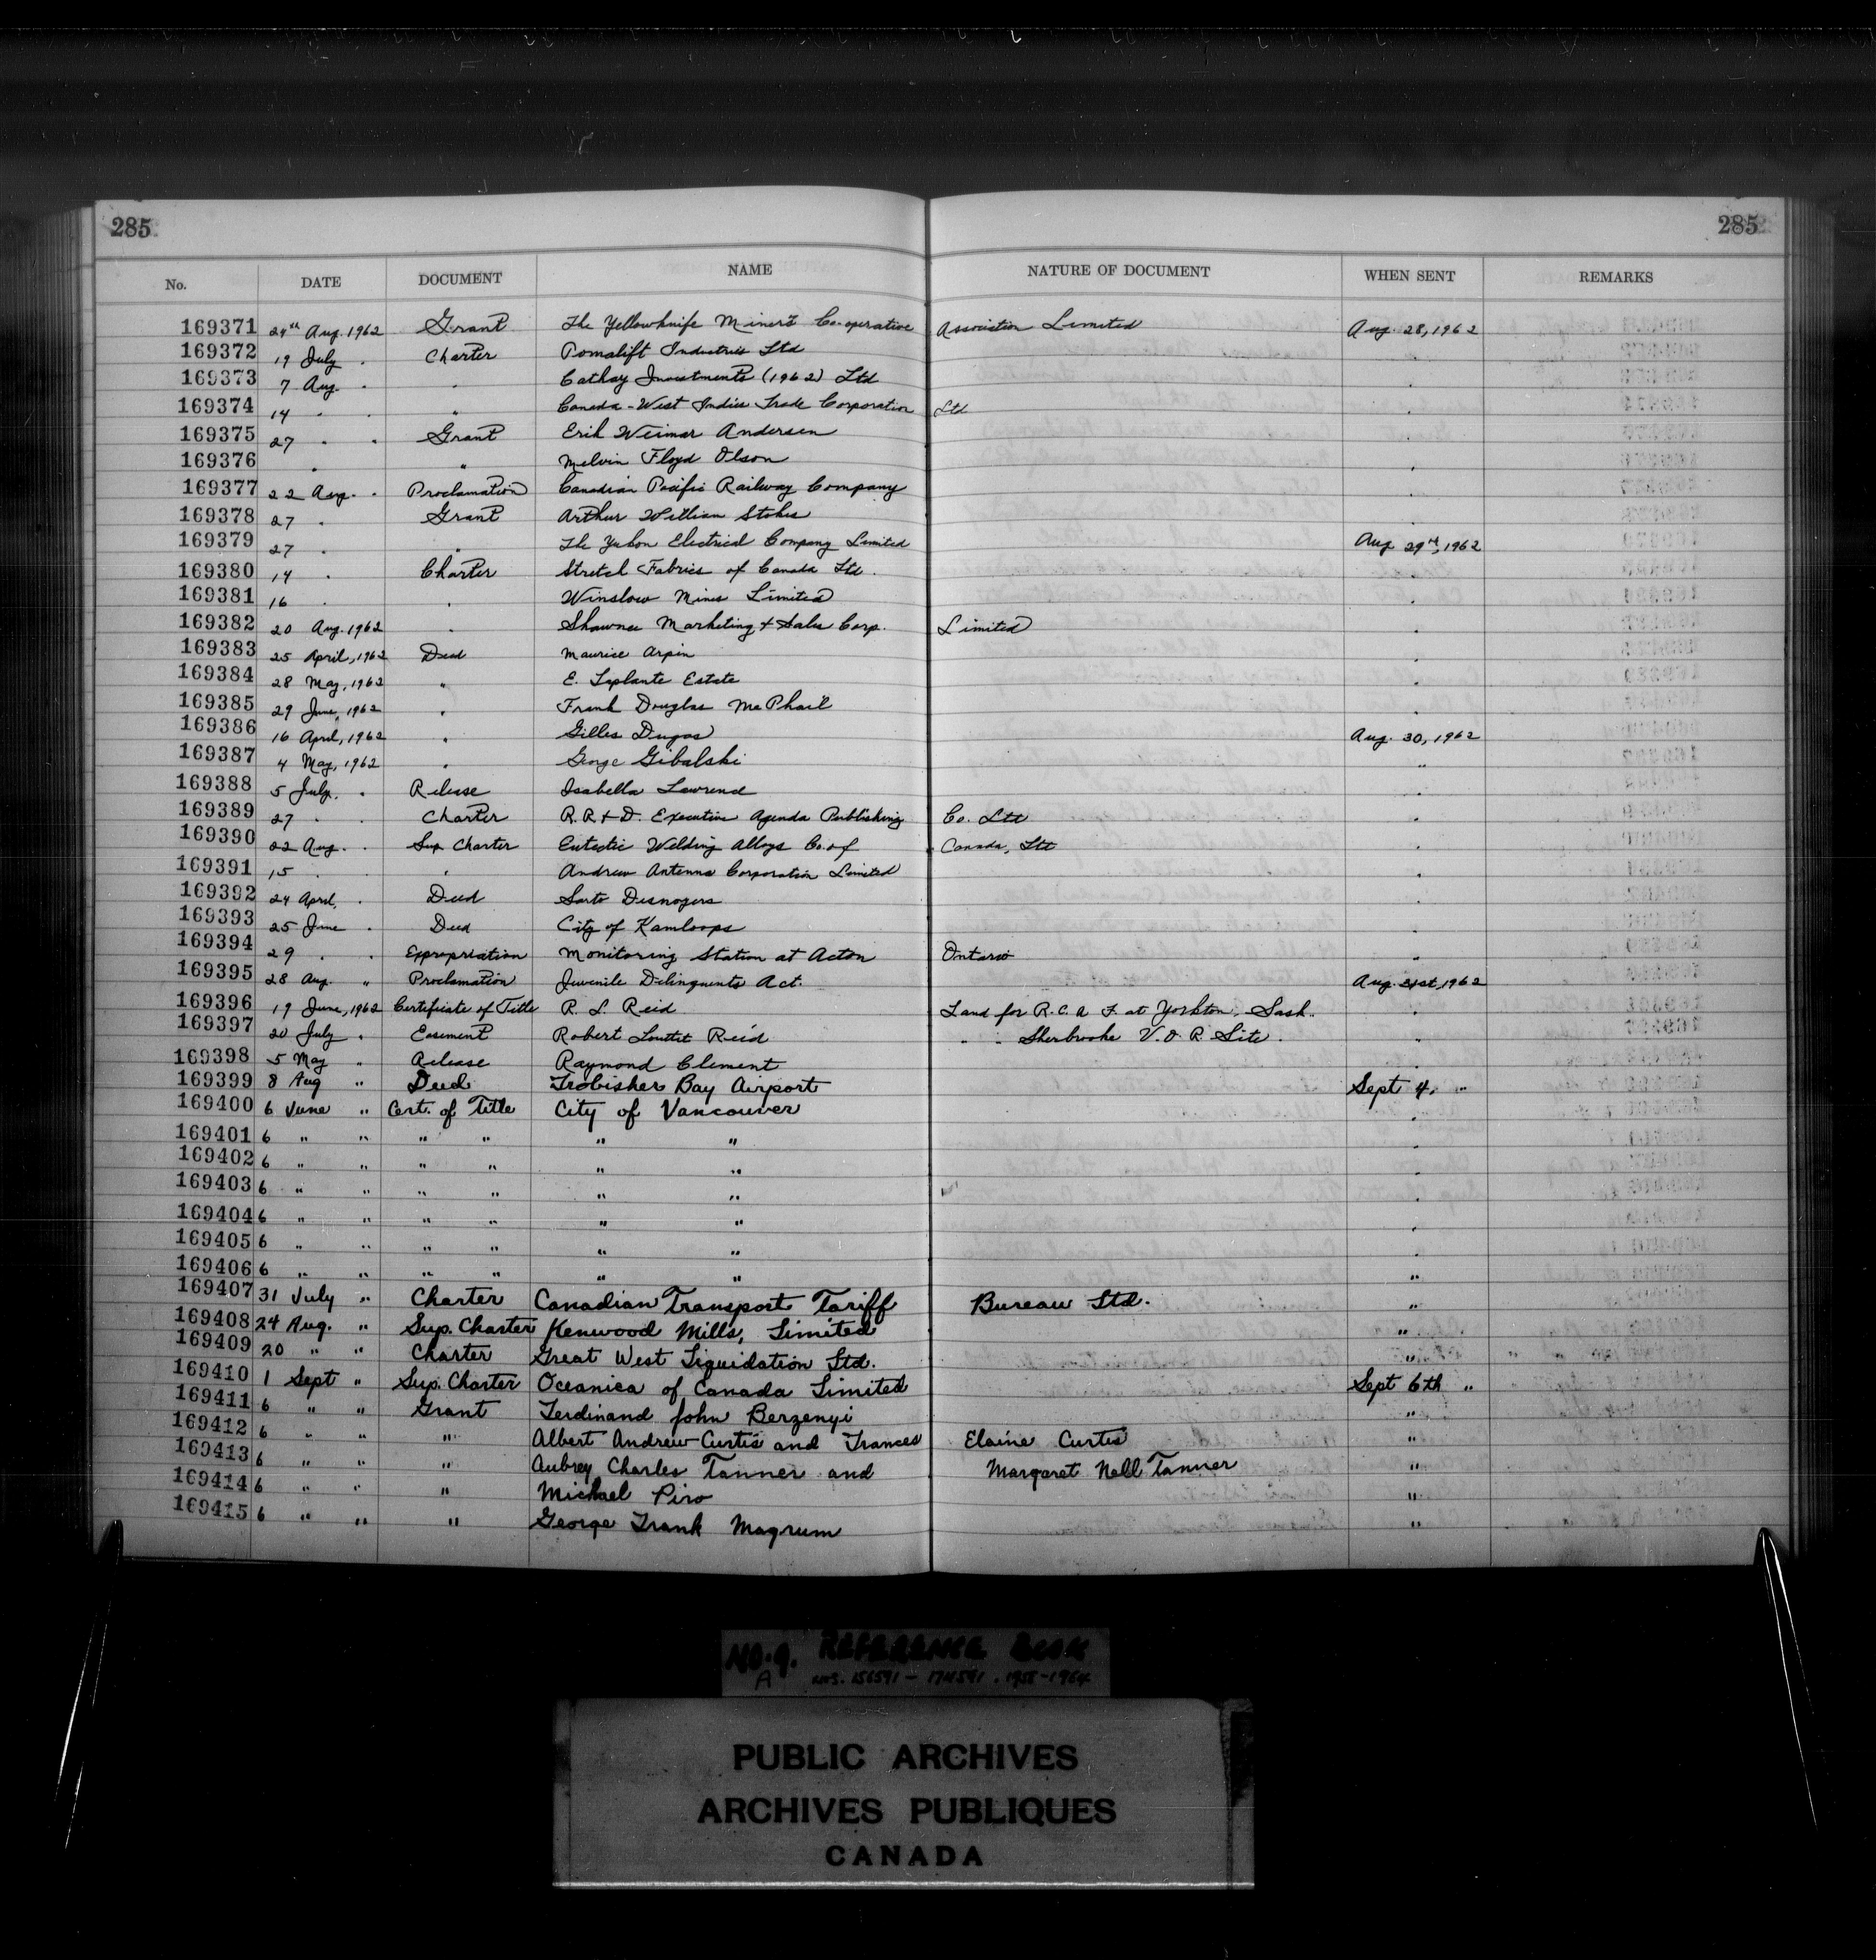 285 285
No. DATE DOCUMENT NAME NATURE OF DOCUMENT WHEN SENT REMARKS
169371 24th Aug. 1962 Grant The Yellowknife Miner's Co-operative Association Limited Aug. 28, 1962
169372 19 July . Charter Pomalift Industries Ltd .
169373 7 Aug. . . Cathay Investments (1962) Ltd .
169374 14 . . " Canada-West Indies Trade Corporation Ltd .
169375 27 . . Grant Erik Weimar Andersen .
169376 . " Melvin Floyd Olson .
169377 22 Aug. . Proclamation Canadian Pacific Railway Company .
169378 27 . Grant Arthur William Stokes .
169379 27 . . The Yukon Electrical Company Limited Aug 29th, 1962
169380 14 . Charter Stretch Fabrics of Canada Ltd. .
169381 16 . . Winslow Mines Limited .
169382 20 Aug. 1962 . Shawnee Marketing & Sales Corp. Limited .
169383 25 April, 1962 Deed Maurice Arpin .
169384 28 May, 1962 " E. Laplante Estate .
169385 29 June, 1962 . Frank Douglas McPhail .
169386 16 April, 1962 . Gilles Dugas Aug. 30, 1962
169387 4 May, 1962 . George Gibalski "
169388 5 July. . Release Isabella Lawrend .
169389 27 . . Charter R.R & D. Executive Agenda Publishing Co. Ltd .
169390 22 Aug. . Sup Charter Eutectic Welding Alloys Co. of Canada, Ltd .
169391 15 . . Andrew Antenna Corporation Limited .
169392 24 April, . Deed Sarto Desnoyers .
169393 25 June . Deed City of Kamloops .
169394 29 . . Expropriation Monitoring Station at Acton Ontario "
169395 28 Aug. " Proclamation Juvenile Delinquents Act. Aug. 31st, 1962
169396 19 June, 1962 Certificate of Title R. L. Reid Land for R.C.A.F. at Yorkton, Sask. .
169397 20 July . Easement Robert Louttit Reid " . Sherbrooke V.O.R. Site. "
169398 5 May " Release Raymond Clement .
169399 8 Aug " Deed Frobisher Bay Airport Sept 4, "
169400 6 June " Cert. of Title City of Vancouver .
169401 6 " " " " " " .
169402 6 " " " " " " .
169403 6 " " " " " " .
169404 6 " " " " " " .
169405 6 " " " " " " .
169406 6 " " " " " " "
169407 31 July " Charter Canadian Transport Tariff Bureau Ltd. "
169408 24 Aug. " Sup. Charter Kenwood Mills, Limited "
169409 20 " " Charter Great West Liquidation Ltd. "
169410 1 Sept " Sup. Charter Oceanica of Canada Limited Sept 6th "
169411 6 " " Grant Ferdinand John Berzenyi "
169412 6 " " " Albert Andrew Curtis and Frances Elaine Curtis "
169413 6 " " " Aubrey Charles Tanner and Margaret Nell Tanner "
169414 6 " " " Michael Piro "
169415 6 " " " George Frank Magrum "
NO. 9. REFERENCE BOOK
A NOS. 156591 - 174591 . 1958-1964
PUBLIC ARCHIVES
ARCHIVES PUBLIQUES
CANADA